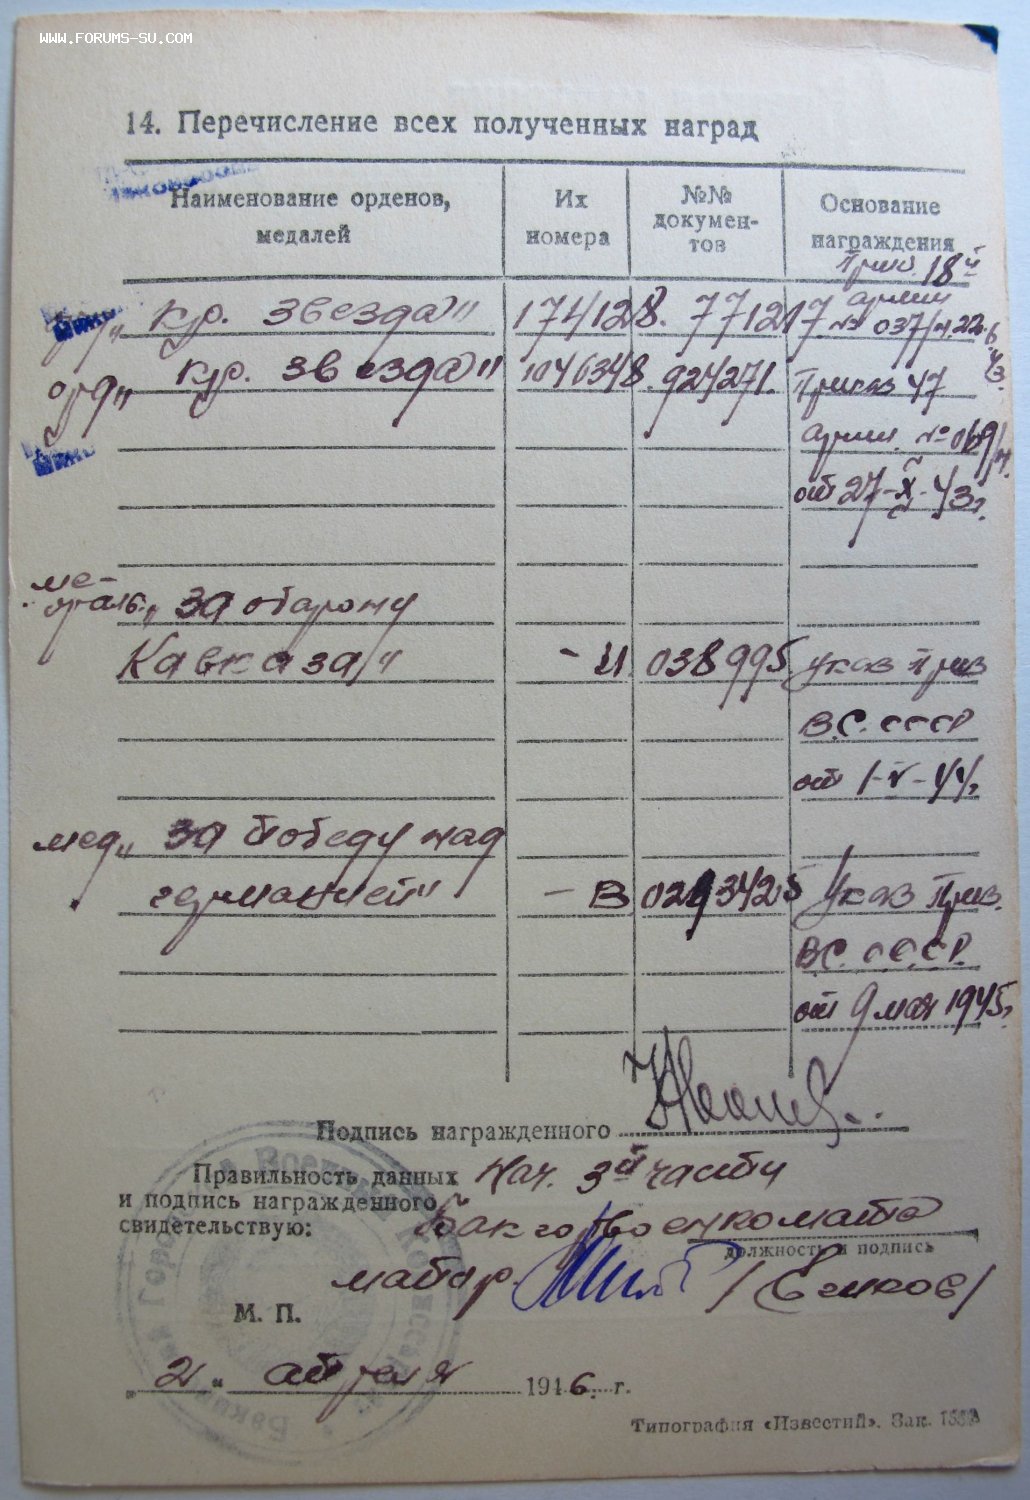 WWW.FORUMS-SU.COM
14. Перечисление всех полученных наград
Наименование орденов, медалей
Их номера
№№ документов
Основание награждения
„Кр. звезда" 174128. 771217 Приказ 18й армии № 037/н. 22.6.43
орд „Кр. звезда" 1046348. 924271. Приказ 47
армии № 069/н.
от 27-X-43г.
ме-
даль. „За оборону
Кавказа" - И 038995. указ През
В.С. СССР
от 1-V-44г.
мед „За Победу над
германией" - В 0293425 Указ През.
В.С. С.С.С.Р.
от 9 мая 1945г.
Подпись награжденного
Правильность данных Нач. 3й части
и подпись награжденного
свидетельствую: Бакгорвоенкомата
должность и подпись
майор
М. П.
„2" апреля 1946. г.
Типография «Известий». Зак.